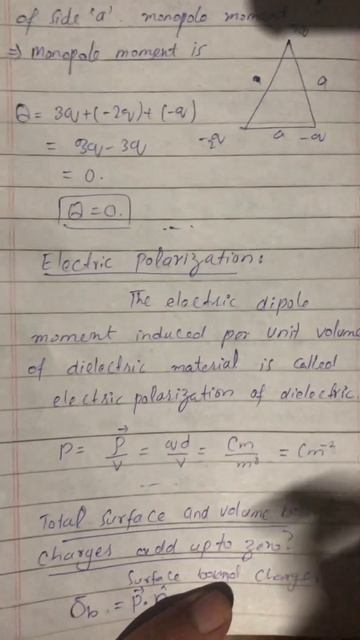 of side 'a'. monopole moment
⇒ Monopole moment is
a
Q = 3q+(-2q)+(-q)
-2q a -q
= 3q-3q
= 0.
Q = 0.
Electric Polarization:
The electric dipole
moment induced per unit volume
of dielectric material is called
electric polarization of dielectric.
P = p⃗/V = qd/V = Cm/m³ = Cm⁻²
Total Surface and volume
charges add up to zero?
Surface bound charges
σb = P⃗.n̂